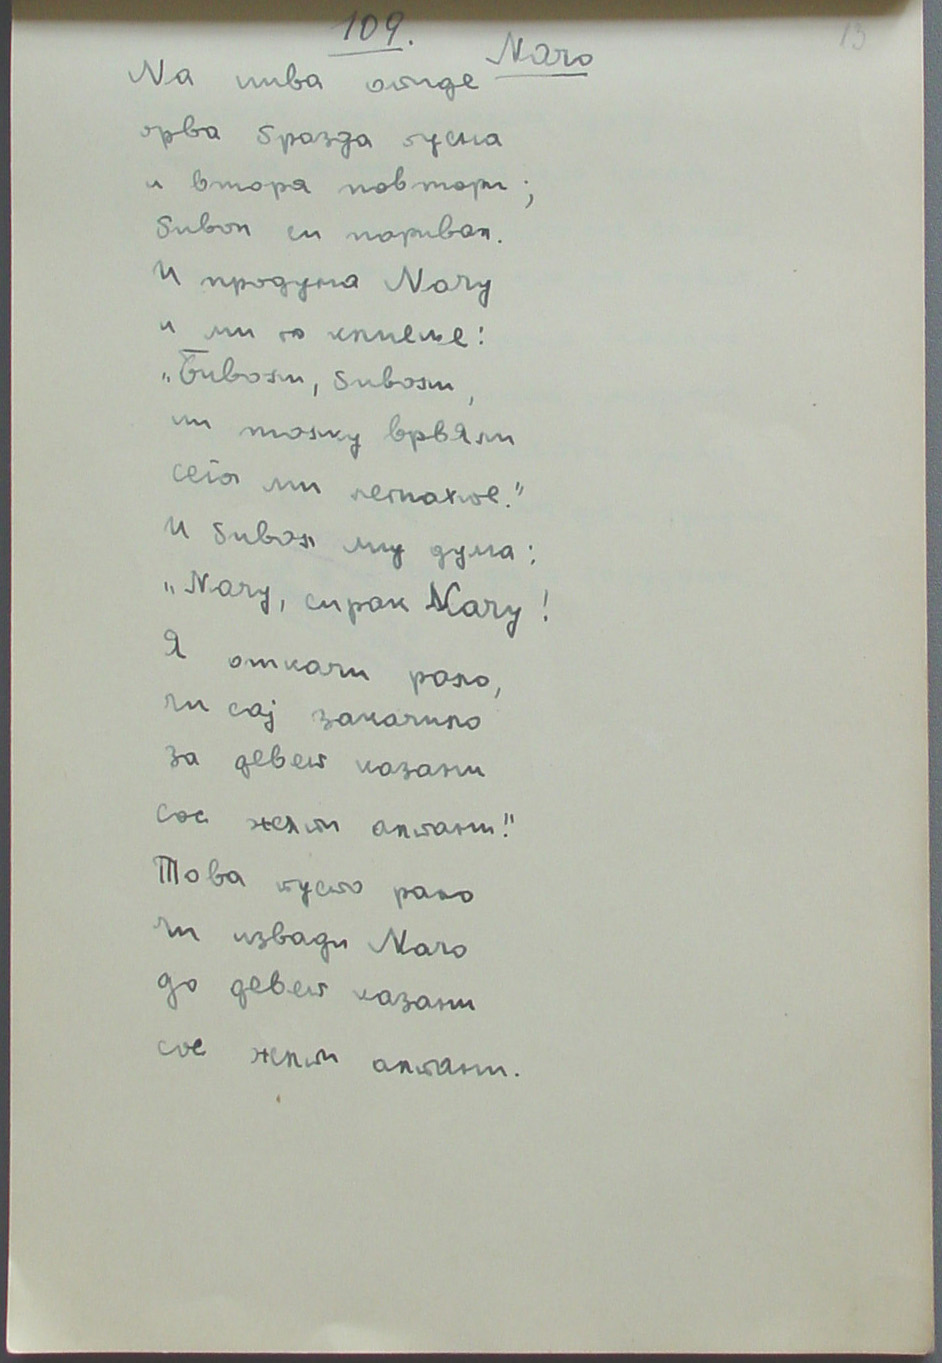 109.
13
На нива отиде Начо
прва бразда пусна
и втора повтори;
бивол си
И продума Начу
и ми
„Биволи, биволи,
ни толку врвяли
сега ми легнахте."
И бивол му дума:
„Начу, сирак Начу!
Я откачи рало,
чи сај закачило
за девет казани
сос желти алтани!"
Това пусто рало
чи извади Начо
до девет казани
сос желти алтани.